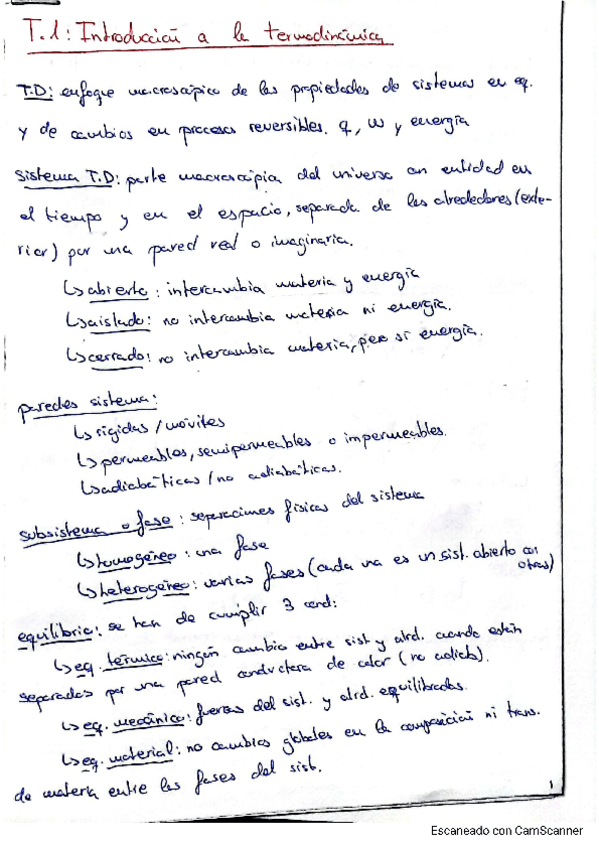 T.1: Introducción a la termodinámica
T.D: enfoque macroscópico de las propiedades de sistemas en eq.
y de cambios en procesos reversibles. q, w y energía
sistema T.D: parte macroscópica del universo con entidad en
el tiempo y en el espacio, separada de los alrededores (exte-
rior) por una pared real o imaginaria.
↳ abierto: intercambia materia y energía
↳ aislado: no intercambia materia ni energía.
↳ cerrado: no intercambia materia, pero sí energía.
paredes sistema:
↳ rígidas / móviles
↳ permeables, semipermeables o impermeables.
↳ adiabáticas / no adiabáticas.
subsistema o fase: separaciones físicas del sistema
↳ homogéneo: una fase
↳ heterogéneo: varias fases (cada una es un sist. abierto con
otras)
equilibrio: se han de cumplir 3 cond:
↳ eq. térmico: ningún cambio entre sist y alrd. cuando están
separados por una pared conductora de calor (no adiabát).
↳ eq. mecánico: fuerzas del sist. y alrd. equilibradas.
↳ eq. material: no cambios globales en la composición ni trans.
de materia entre las fases del sist.
1
Escaneado con CamScanner